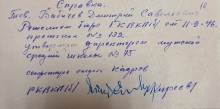 Справка.
Тов. Байчев Дмитрий Савельевич
Решением бюро РККАКП от 11-9-46.
протокол № 132
утвержден директором мужской
средней школы № 25
секретарь отдел кадров
РККАКП